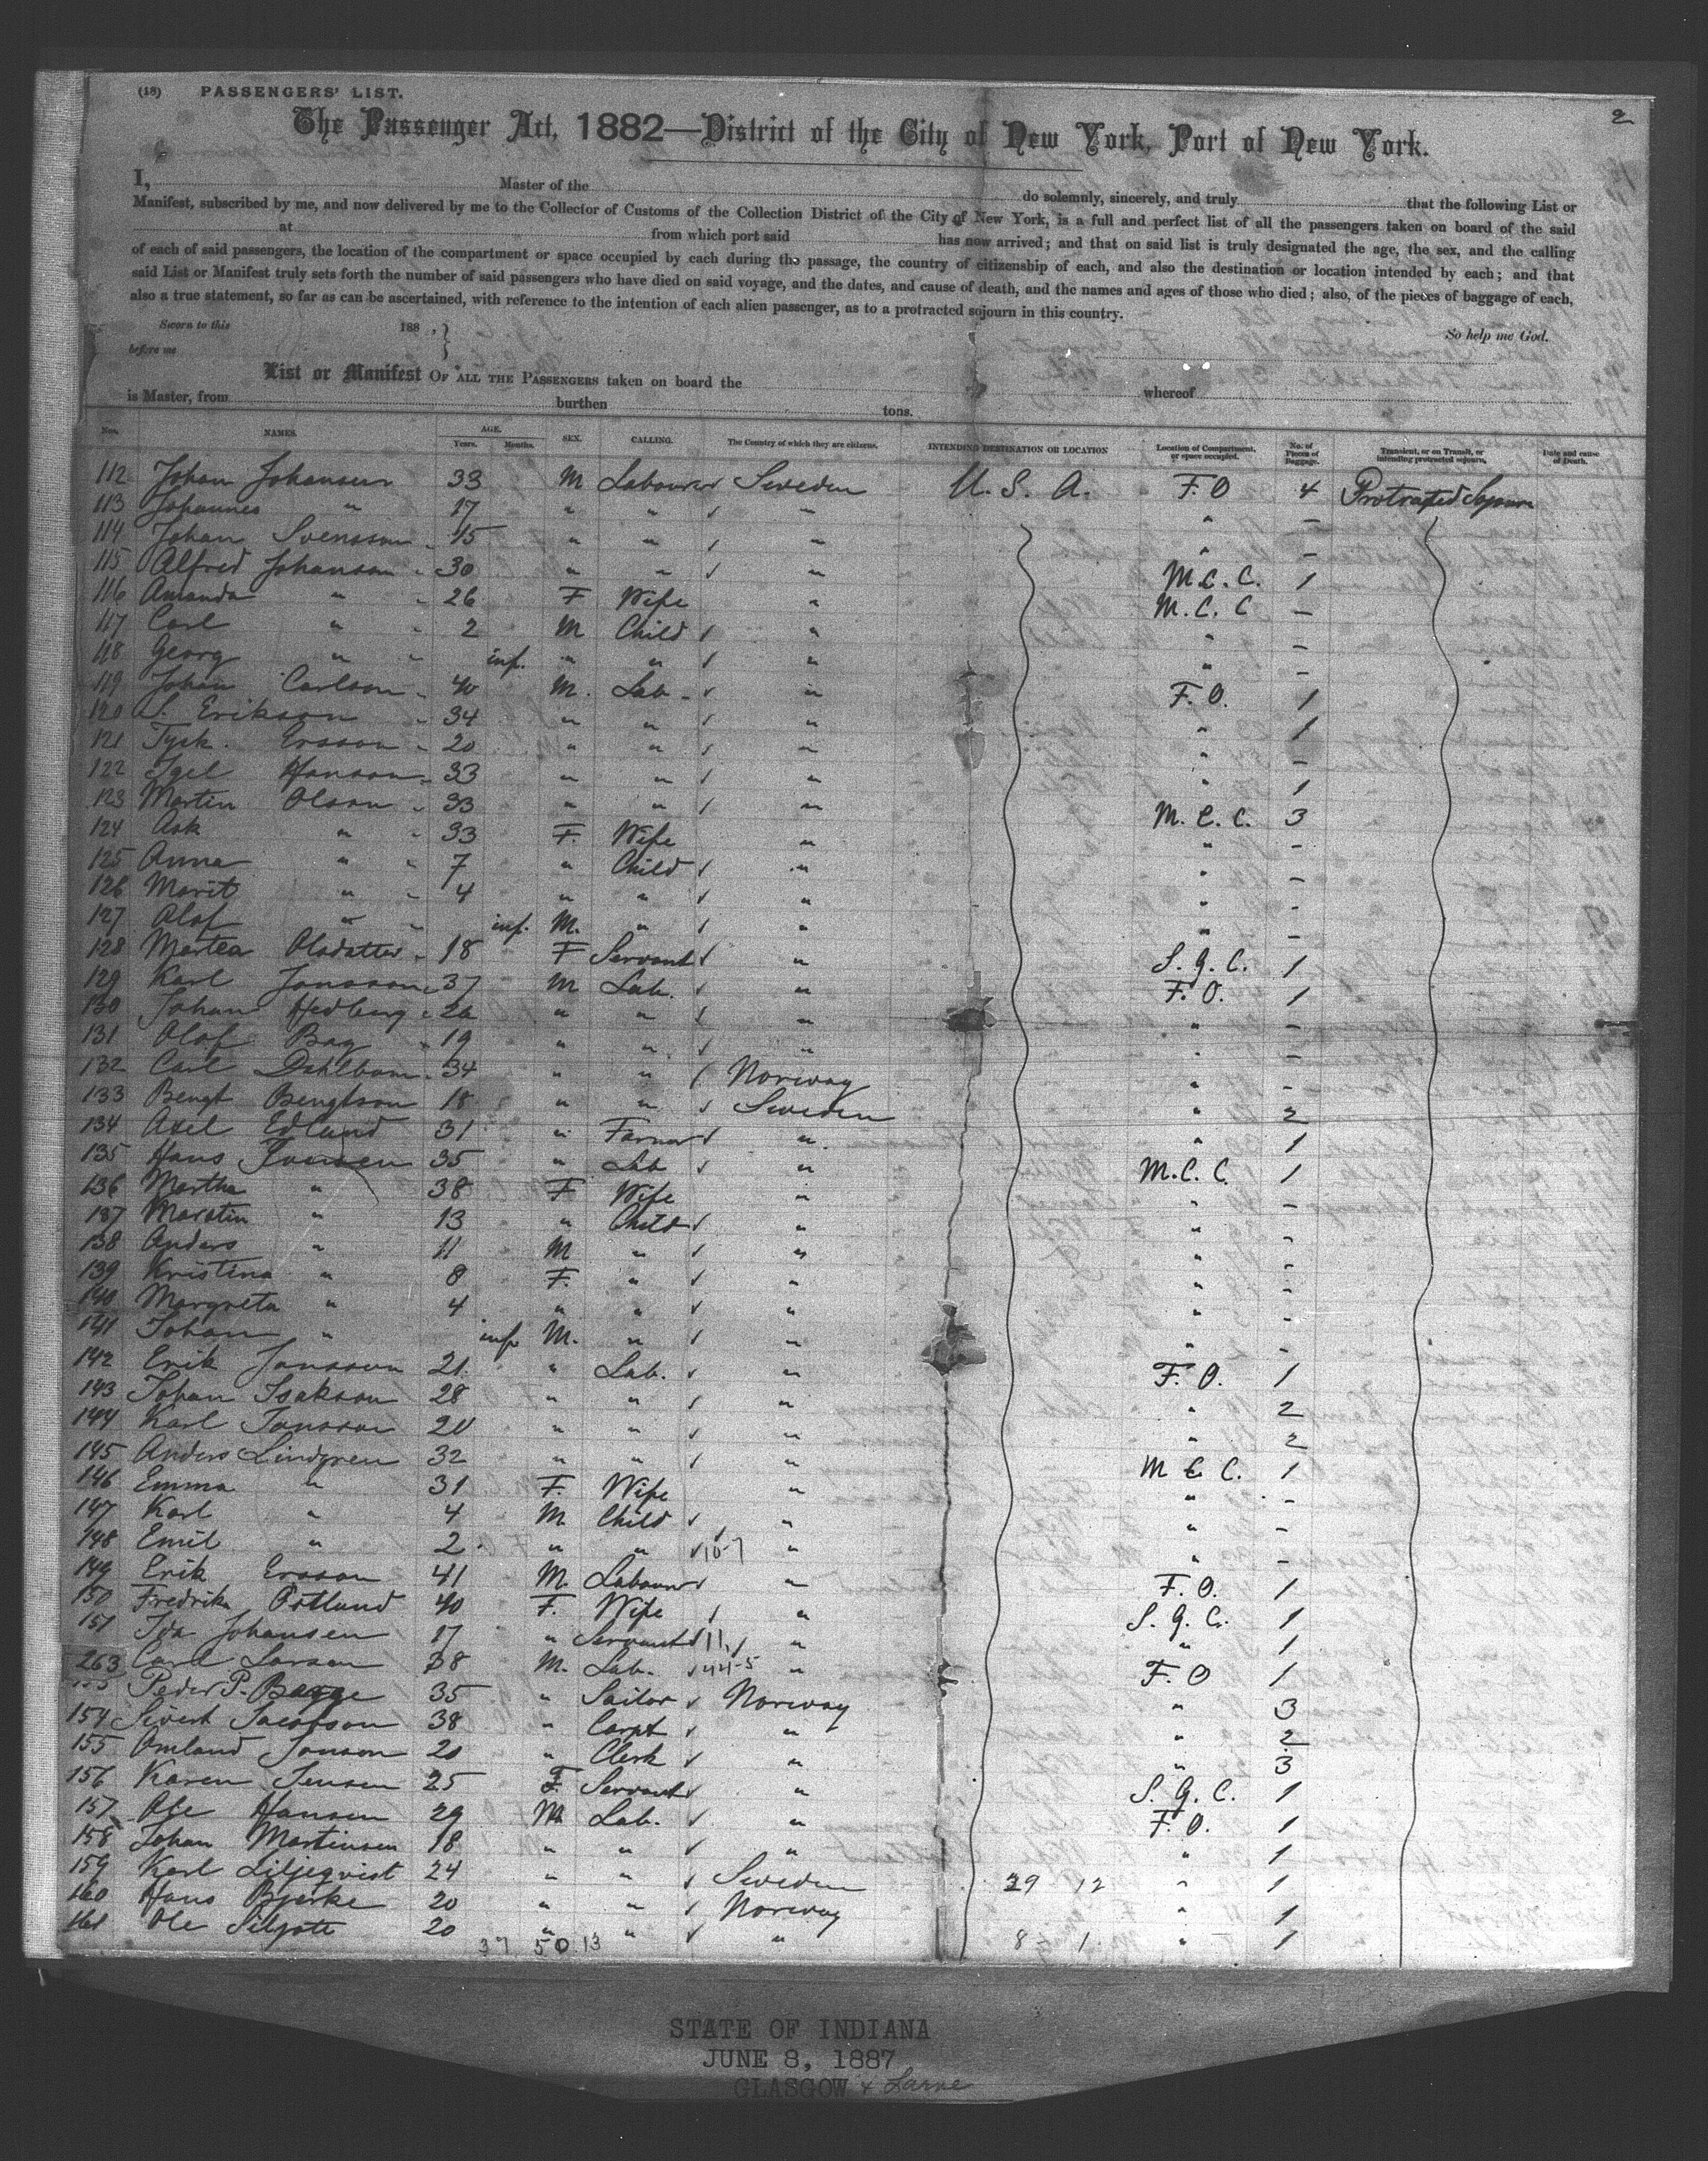 (18) PASSENGERS' LIST. 2
The Passenger Act, 1882—District of the City of New York, Port of New York.
I, Master of the do solemnly, sincerely, and truly that the following List or
Manifest, subscribed by me, and now delivered by me to the Collector of Customs of the Collection District of the City of New York, is a full and perfect list of all the passengers taken on board of the said
at from which port said has now arrived; and that on said list is truly designated the age, the sex, and the calling
of each of said passengers, the location of the compartment or space occupied by each during the passage, the country of citizenship of each, and also the destination or location intended by each; and that
said List or Manifest truly sets forth the number of said passengers who have died on said voyage, and the dates, and cause of death, and the names and ages of those who died; also, of the pieces of baggage of each,
also a true statement, so far as can be ascertained, with reference to the intention of each alien passenger, as to a protracted sojourn in this country.
Sworn to this 188 , } So help me God.
before me
List or Manifest OF ALL THE PASSENGERS taken on board the whereof
is Master, from burthen tons.
Nos. NAMES. AGE. Years. Months. SEX. CALLING. The Country of which they are citizens. INTENDING DESTINATION OR LOCATION Location of Compartment, or space occupied. No. of Pieces of Baggage. Transient, or on Transit, or intending protracted sojourn. Date and cause of Death.
112 Johan Johansen 33 M Labourer Sweden U. S. A. F. O 4 Protracted Sojourn
113 Johannes " 17 " " " " –
114 Johan Svensson 15 " " " " –
115 Alfred Johanson 30 " " " M.C.C. 1
116 Amanda " 26 F Wife " M.C.C –
117 Carl " 2 M Child " " –
118 Georg " inf. " " " " –
119 Johan Carlson 40 M. Lab. " F. O. 1
120 S. Erikson 34 " " " " 1
121 Tysk. Ersson 20 " " " " –
122 Igel Hanson 33 " " " " 1
123 Martin Olson 33 " " " M.C.C. 3
124 Ask " 33 F. Wife " " –
125 Anna " 7 " Child " " –
126 Marit " 4 " " " " –
127 Olof " inf. M. " " " –
128 Martea Olsdatter 18 F Servant " S.G.C. 1
129 Karl Jonsson 37 M Lab. " F. O. 1
130 Johan Hedberg 26 " " " " –
131 Olof Bag 19 " " " " –
132 Carl Dahlbom 34 " " Norway " –
133 Bengt Bengtson 18 " " Sweden " 2
134 Axel Edlund 31 " Farmer " " 1
135 Hans 35 " Lab " M.C.C. 1
136 Martha " 38 F Wife " " –
137 " 13 " Child " " –
138 Anders " 11 M " " " –
139 Kristina " 8 F. " " " –
140 Margreta " 4 " " " " –
141 Johan " inf M. " " " –
142 Erik Jonsson 21 " Lab. " F. O. 1
143 Johan Isakson 28 " " " " 2
144 Karl Jonsson 20 " " " " 2
145 Anders Lindgren 32 " " " M.C.C. 1
146 Emma " 31 F. Wife " " –
147 Karl " 4 M Child " " –
148 Emil " 2 " " 10-7 " " –
149 Erik Ersson 41 M. Labourer " F. O. 1
150 Fredrika Ostlund 40 F. Wife " S.G.C. 1
151 Ida Johansen 17 " Servant 11, 1 " " 1
263 Carl Larson 38 M. Lab. 44-5 " F. O 1
Peder P. Bagge 35 " Sailor Norway " 3
154 Sivert Jacobson 38 " Carpt " " 2
155 Omland Jonson 20 " Clerk " " 3
156 Karen Jensen 25 F Servant " S.G.C. 1
157 Ole Hansen 29 M Lab. " F. O. 1
158 Johan Martinsen 18 " " " " 1
159 Karl Liljeqvist 24 " " Sweden 39 12 " 1
160 Hans Bjerke 20 " " Norway " 1
161 Ole 20 " " " 8 1 " 1
37 50 13
STATE OF INDIANA
JUNE 8, 1887
GLASGOW & Larne